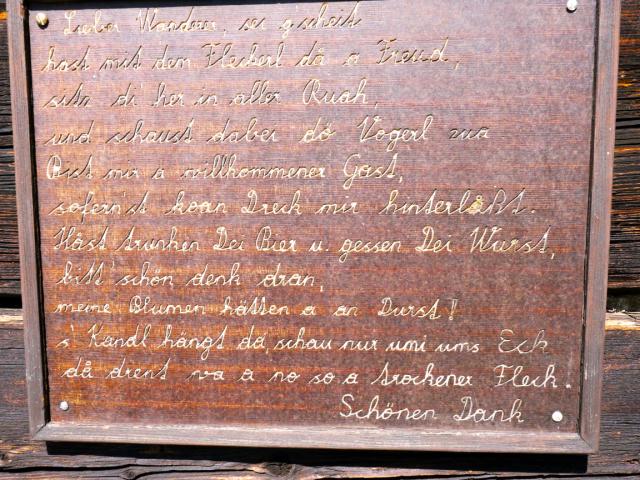 Lieber Wanderer, sei g'scheit
hast mit dem Fleckerl då a Freud,
sitz di' her in aller Ruah,
und schaust dabei dö Vogerl zua
Bist mir a willkommener Gast,
sofern'st koan Dreck mir hinterlåßt.
Håst trunken Dei Bier u. gessen Dei Wurst,
bitt' schön denk dran,
meine Blumen hätten a an Durst!
s' Kandl hängt då, schau nur umi ums Eck
då drent wa a no so a trockener Fleck.
Schönen Dank